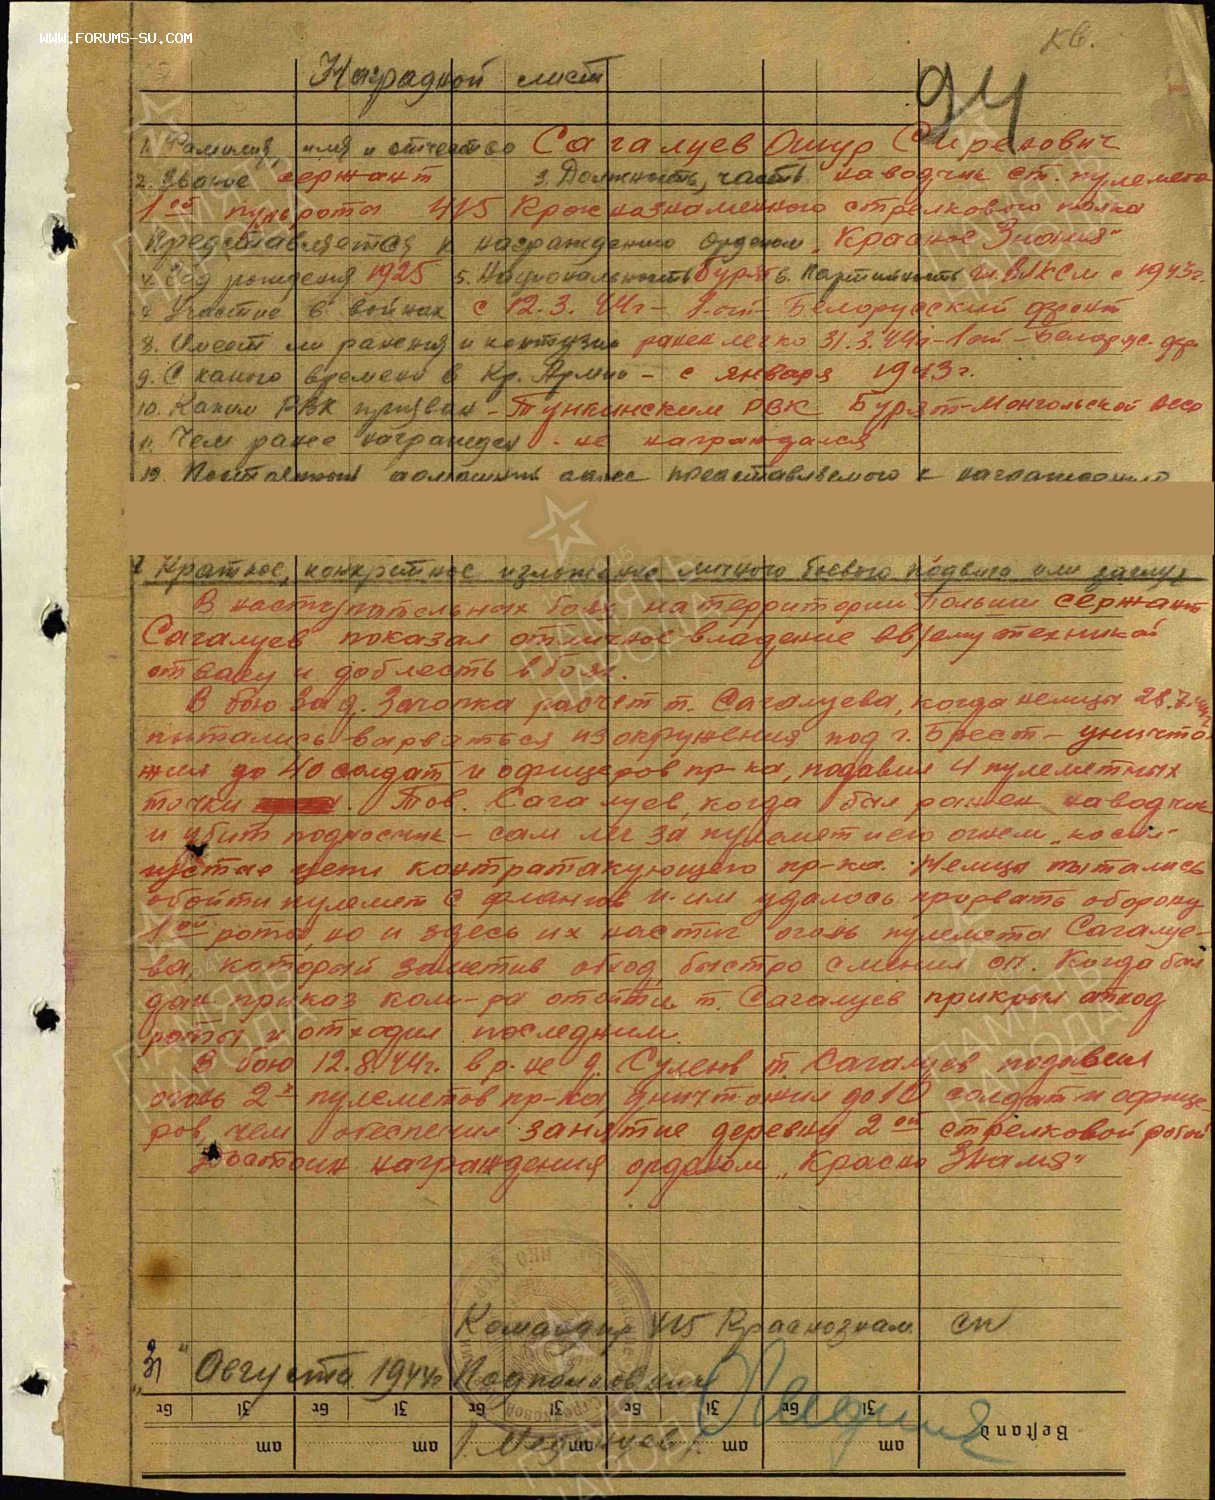 WWW.FORUMS-SU.COM
кв.
Наградной лист
94
1. Фамилия, имя и отчество Сагалуев Ошур Сиренович
2. Звание сержант 3. Должность, часть наводчик ст. пулемета
1ой пульроты 415 Краснознаменного стрелкового полка
Представляется к награждению Орденом „Красное Знамя"
4. Год рождения 1925 5. Национальность бурят 6. Партийность чл. ВЛКСМ с 1943г.
7. Участие в войнах с 12.3.44г - 1-ый Белорусский фронт
8. Имеет ли ранения и контузию ранен легко 31.3.44г-1ый-Белорус. фр
9. С какого времени в Кр. Армии - с января 1943г.
10. Каким РВК призван - Тункинским РВК Бурят-Монгольской АССР
11. Чем ранее награжден - не награждался
12. Постоянный домашний адрес представляемого к награждению
Краткое, конкретное изложение личного боевого подвига или заслуг
В наступательных боях на территории Польши сержант
Сагалуев показал отличное владение техникой
отвагу и доблесть в боях.
В бою за д. Зачопка расчет т. Сагалуева, когда немцы 28.7.44г
пытались вырваться из окружения под г. Брест - уничто-
жил до 40 солдат и офицеров пр-ка, подавил 4 пулеметных
точки. Тов. Сагалуев, когда был ранен наводчик
и убит подносчик - сам лег за пулемет и его огнем „косил"
густые цепи контратакующего пр-ка. Немцы пытались
обойти пулемет с флангов и им удалось прорвать оборону
1ой роты, но и здесь их настиг огонь пулемета Сагалуе-
ва, который заметив обход быстро сменил оп. Когда был
дан приказ ком-ра отойти т. Сагалуев прикрыл отход
роты и отходил последним.
В бою 12.8.44г. в р-не д. Сулеюв т. Сагалуев подавил
огонь 2х пулеметов пр-ка, уничтожил до 10 солдат и офице-
ров, чем обеспечил занятие деревни 2ой стрелковой ротой
Достоин награждения орденом „Красно Знамя"
Командир 415 Краснознам сп
„31" Августа 1944г Подполковник
/Мединцев/
Bestand
am 31 Gr am 31 Gr am 31 Gr am 31 Gr am 31 Gr
ПАМЯТЬ НАРОДА